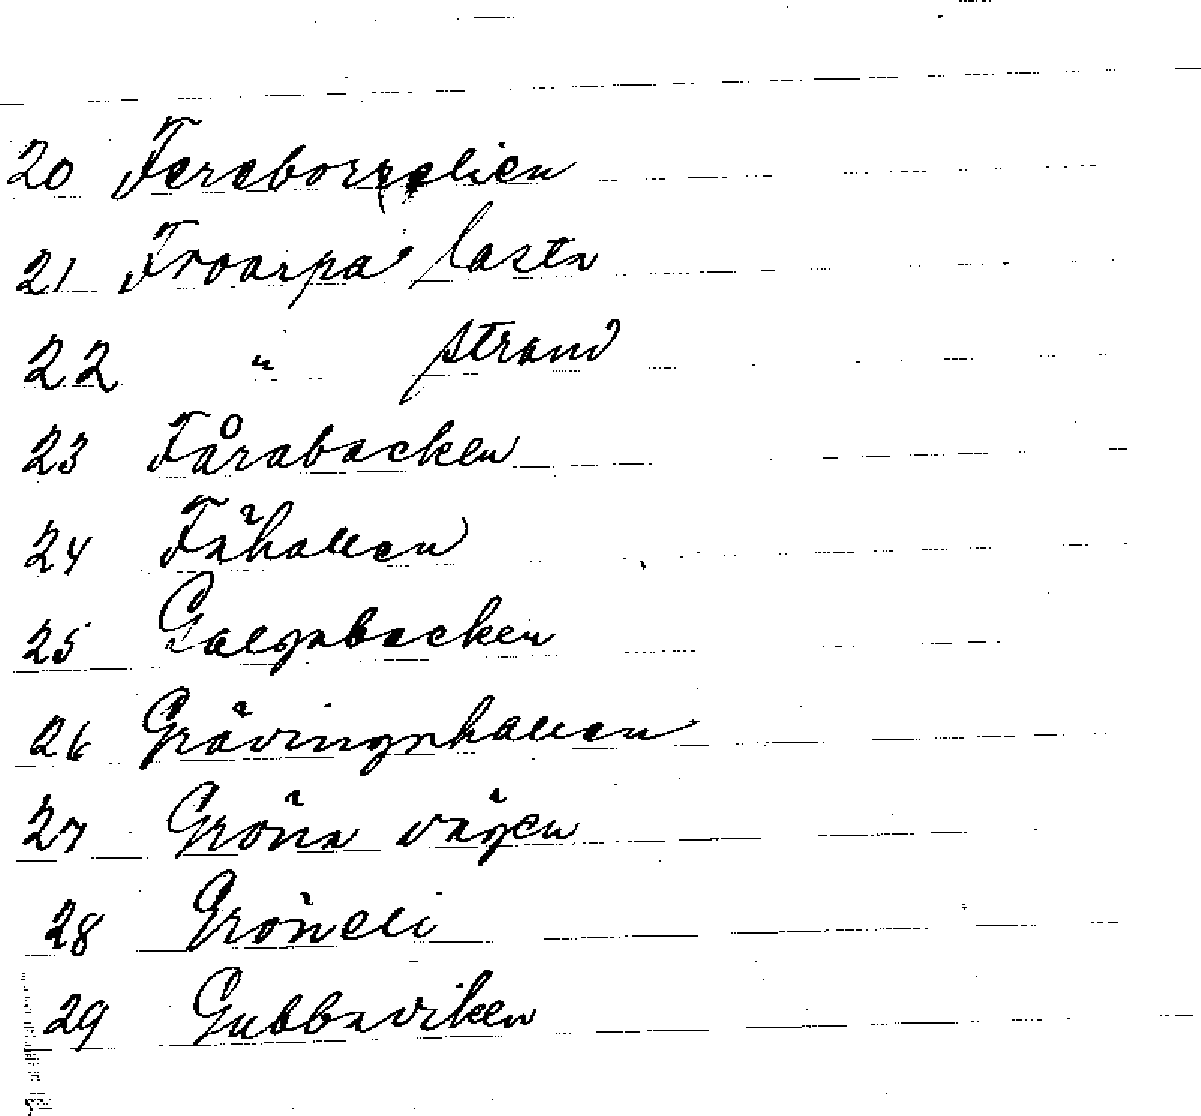 20 Fereborgslien
21 Froarpa lastn
22 " strand
23 Fårabacken
24 Fähallen
25 Galgabacken
26 Grävingahallen
27 Gröna vägen
28 Gröneli
29 Gubbaviken